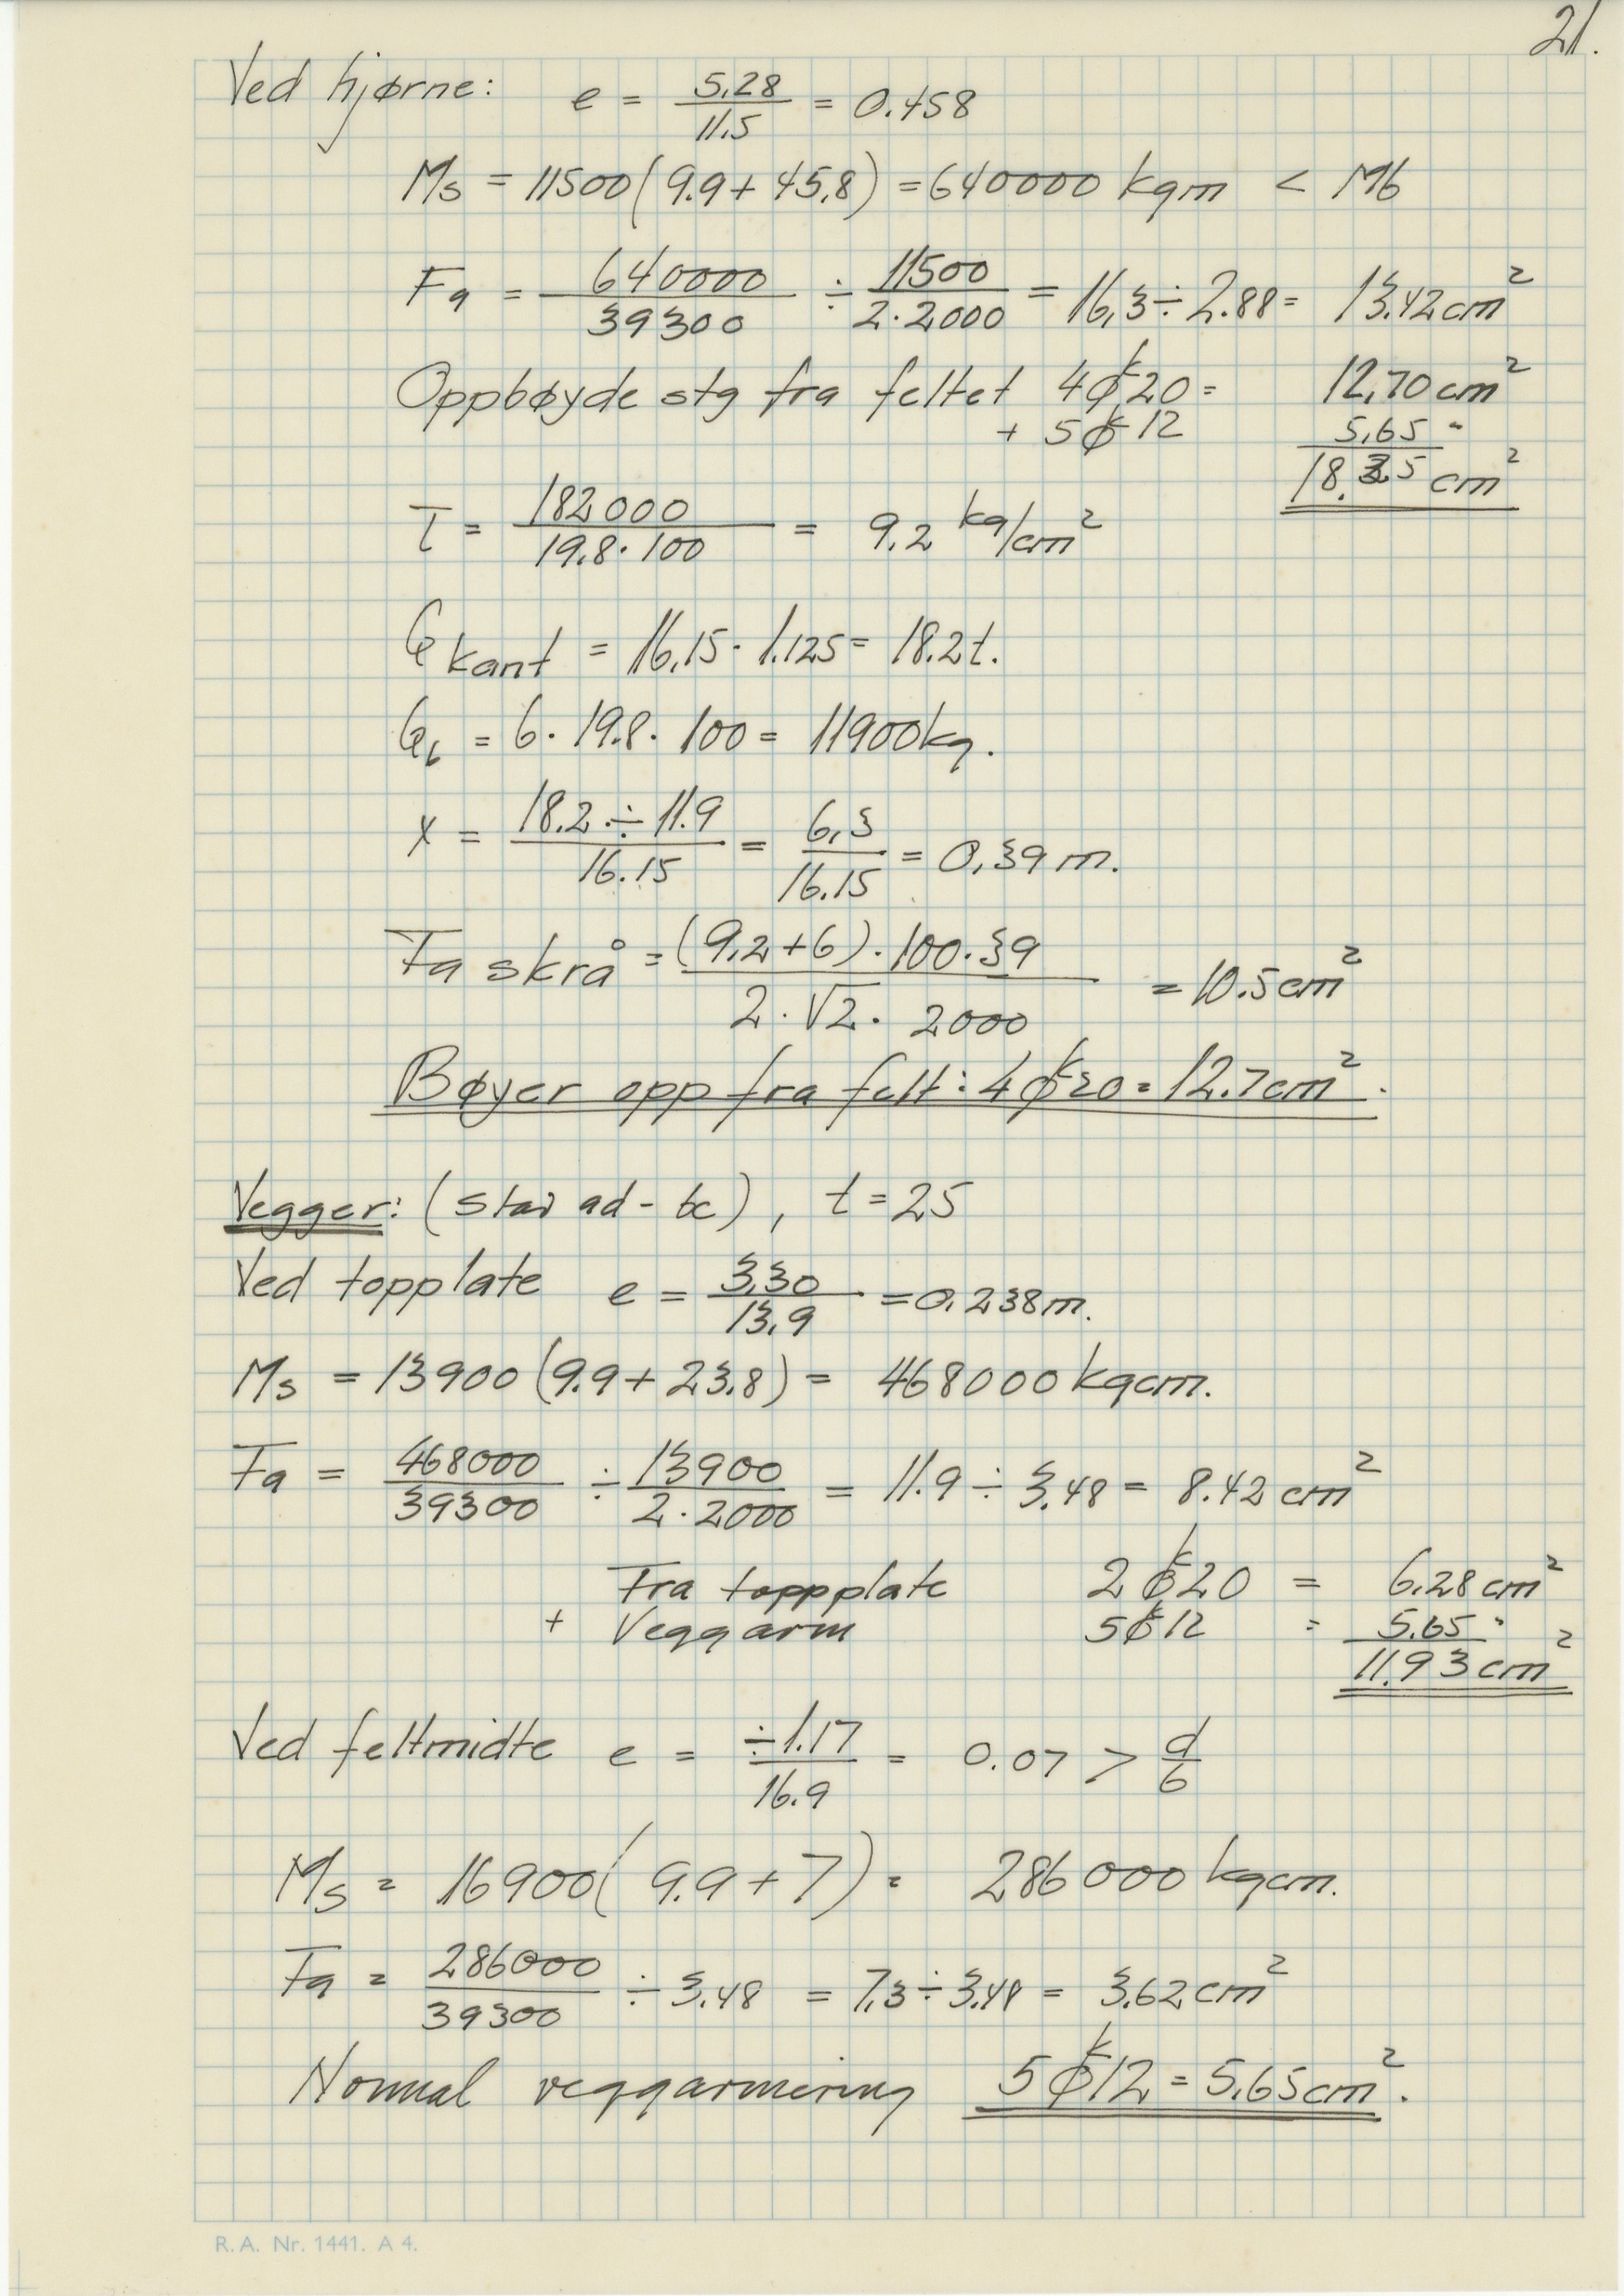 21.
Ved hjørne: e = 5,28 / 11.5 = 0.458
Ms = 11500 (9.9 + 45,8) = 640000 kgm < Mb
Fa = 640000 / 39300 ÷ 11500 / 2·2000 = 16,3 ÷ 2.88 = 13.42 cm²
Oppbøyde stg fra feltet 4 ϕᵏ 20 = 12,70 cm²
+ 5 ϕᵏ 12 5,65 "
18.35 cm²
τ = 182000 / 19,8·100 = 9,2 kg/cm²
Q kant = 16,15 · 1.125 = 18.2 t.
Qb = 6 · 19.8 · 100 = 11900 kg.
x = 18.2 ÷ 11.9 / 16.15 = 6,3 / 16.15 = 0,39 m.
Fa skrå = (9,2 + 6) · 100 · 39 / 2 · √2 · 2000 = 10.5 cm²
Bøyer opp fra felt: 4 ϕᵏ 20 = 12.7 cm².
Vegger: (stav ad - bc), t = 25
Ved topplate e = 3,30 / 13,9 = 0,238 m.
Ms = 13900 (9.9 + 23,8) = 468000 kgcm.
Fa = 468000 / 39300 ÷ 13900 / 2·2000 = 11.9 ÷ 3.48 = 8.42 cm²
Fra toppplate 2 ϕᵏ 20 = 6.28 cm²
+ Veggarm 5 ϕᵏ 12 = 5.65 "
11.93 cm²
Ved feltmidte e = ÷1.17 / 16.9 = 0.07 > d/6
Ms = 16900 (9.9 + 7) = 286000 kgcm.
Fa = 286000 / 39300 ÷ 3.48 = 7,3 ÷ 3.48 = 3.62 cm²
Normal veggarmering 5 ϕᵏ 12 = 5,65 cm².
R.A. Nr. 1441. A 4.